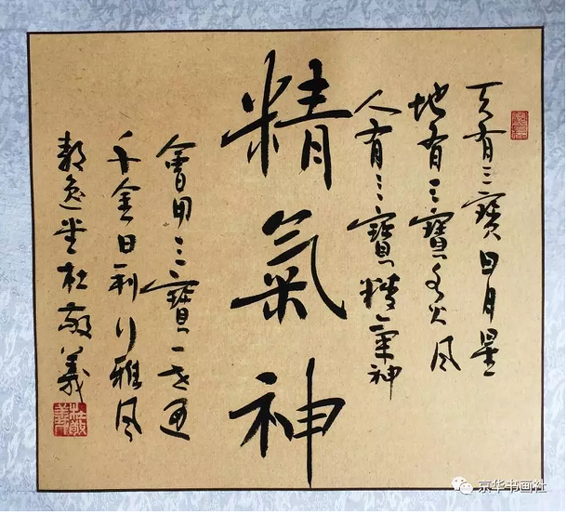 天有三寶日月星
地有三寶水火風
人有三寶精氣神
精氣神
會用三寶一
千金日利行雅風
逸堂杜敬義
京华书画社